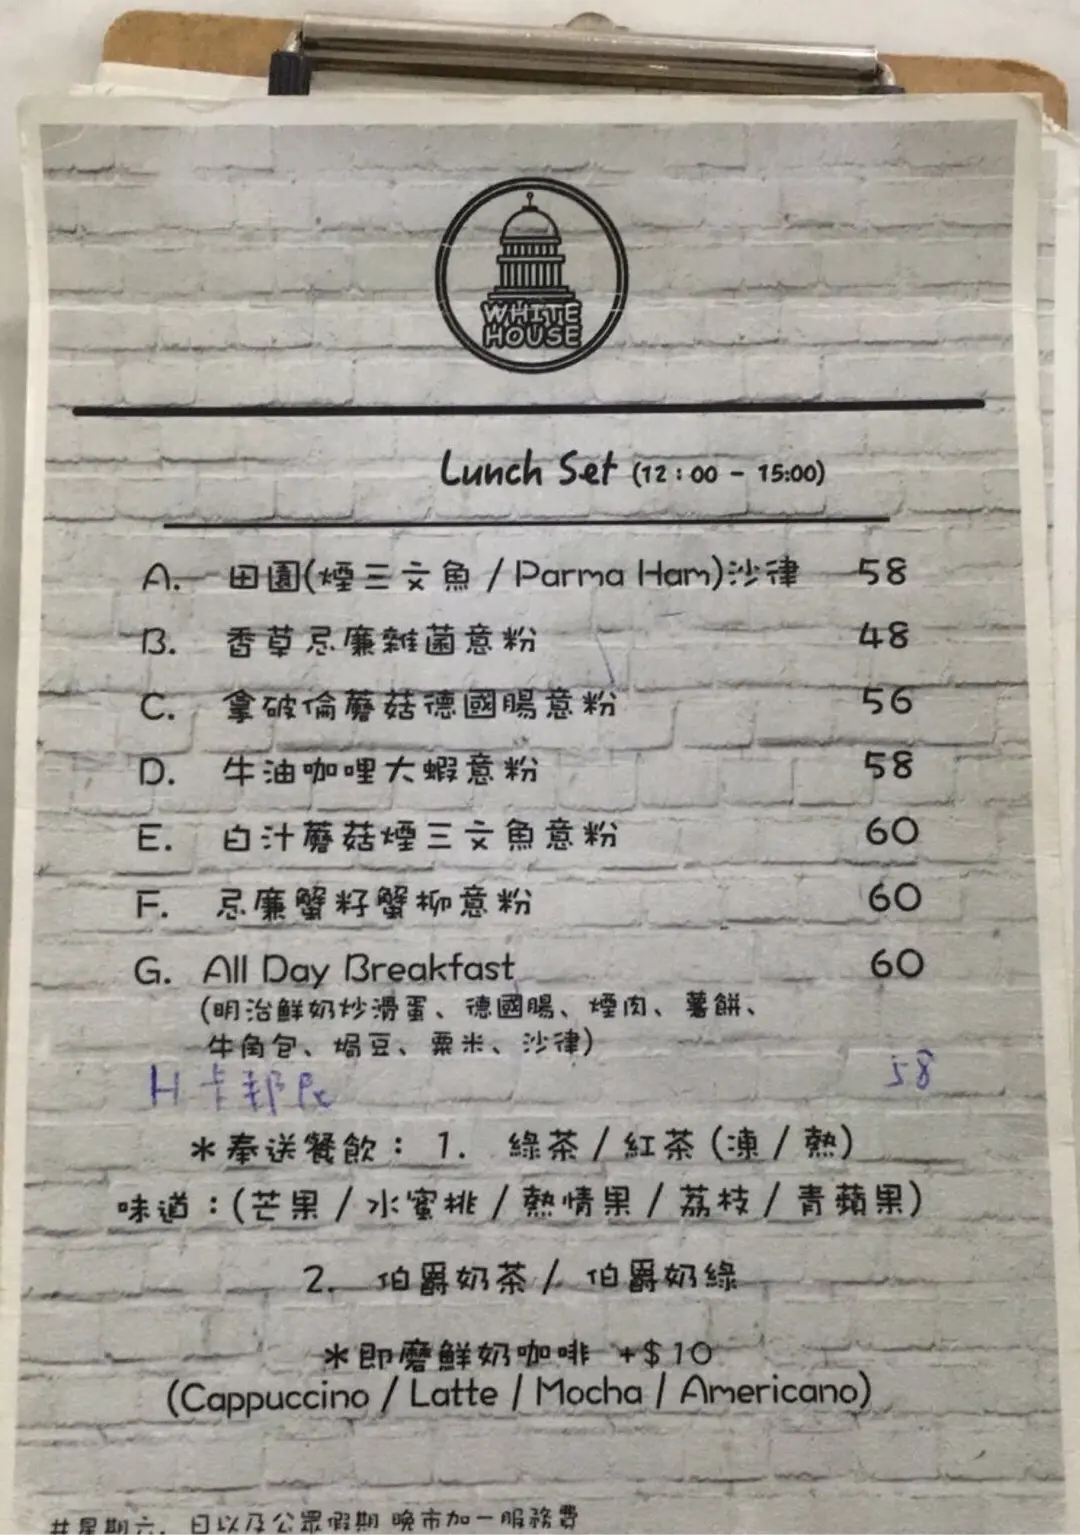 WHITE
HOUSE
Lunch Set (12:00 - 15:00)
A. 田園(煙三文魚 / Parma Ham)沙律 58
B. 香草忌廉雜菌意粉 48
C. 拿破倫蘑菇德國腸意粉 56
D. 牛油咖哩大蝦意粉 58
E. 白汁蘑菇煙三文魚意粉 60
F. 忌廉蟹籽蟹柳意粉 60
G. All Day Breakfast 60
(明治鮮奶炒滑蛋、德國腸、煙肉、薯餅、
牛角包、焗豆、粟米、沙律)
H 卡邦 58
*奉送餐飲: 1. 綠茶 / 紅茶 (凍 / 熱)
味道:(芒果 / 水蜜桃 / 熱情果 / 荔枝 / 青蘋果)
2. 伯爵奶茶 / 伯爵奶綠
*即磨鮮奶咖啡 +$10
(Cappuccino / Latte / Mocha / Americano)
#星期六、日以及公眾假期 晚市加一服務費